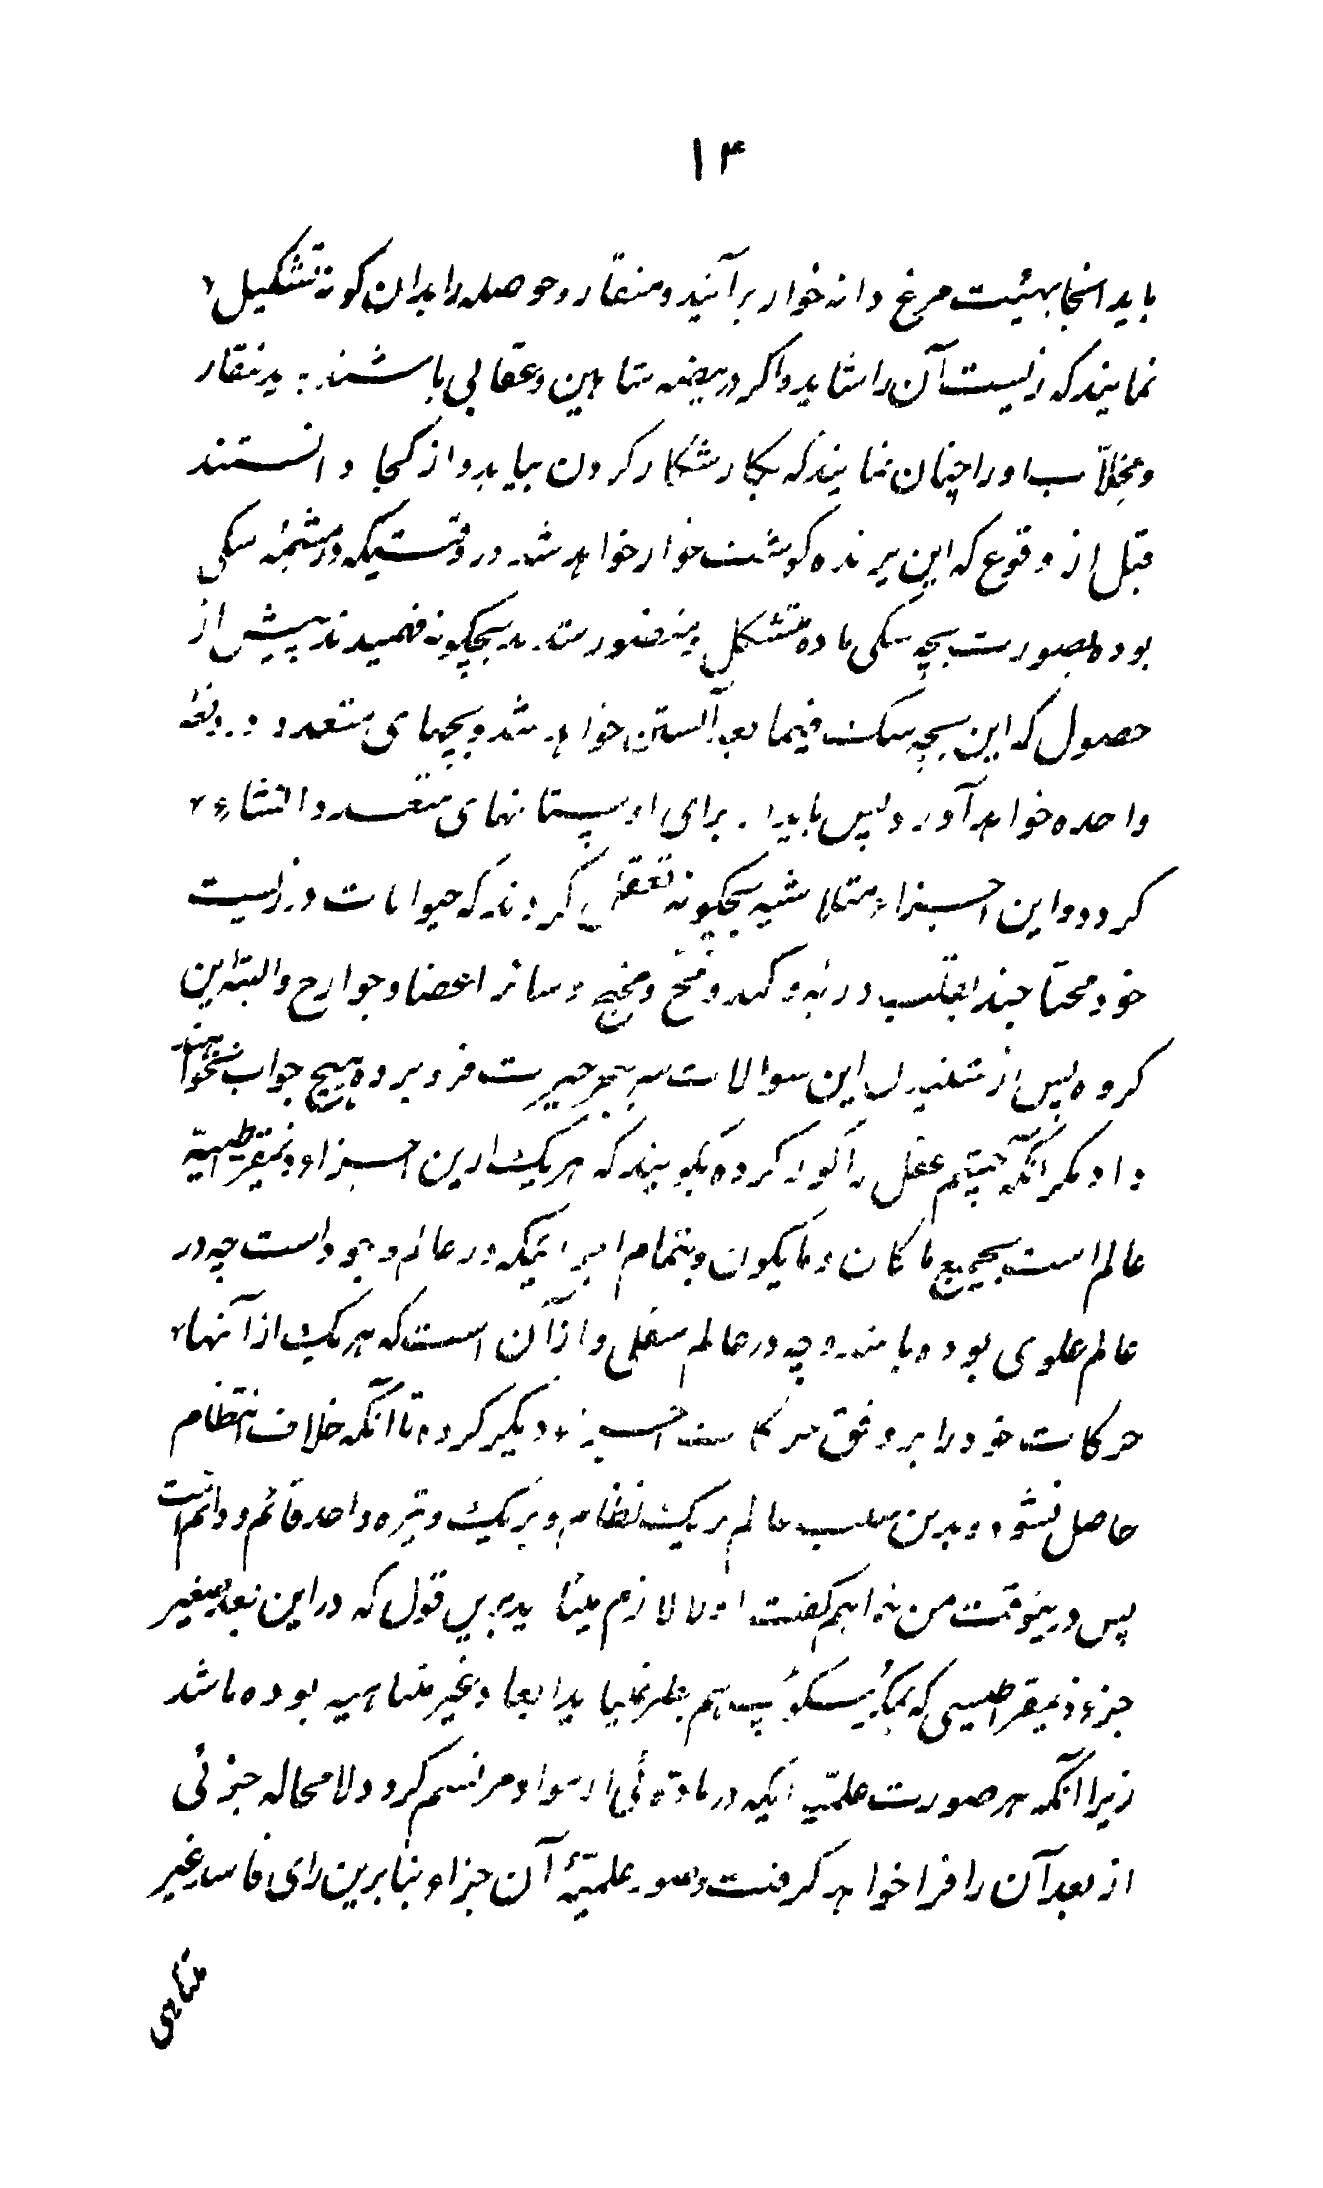 ۱۴
باید انجا بهیئت مرغ دانه خوار برآیند و منقار و حوصله را بدان کونه تشکیل
نمایند که زیست آن را شاید و اکر در بیضه شاهین و عقابی باشند باید منقار
و مخلاب او را چنان نمایند که بکار شکار کردن بیاید و از کجا دانستند
قبل از وقوع که این پرنده کوشت خوار خواهد شد در وقتیکه در مشیمه سکی
بوده بصورت بچه سکی ماده متشکل و متصور شدند بچکونه فهمیدند پیش از
حصول که این بچه سک فیما بعد آبستن خواهد شد و بچهای متعدد در دفعه
واحده خواهد آورد پس باید از برای او پستانهای متعدد انشاء
کردد و این اجزاء متلاشیه بچکونه تعقل کردند که حیوانات در زیست
خود محتاجند بقلب و رئه و کبد و مخ و مخیخ و سائر اعضا و جوارح و البته این
کروه پس از شنیدن این سوالات سر ببحر حیرت فرو برده هیچ جواب نخواهند
داد مکر آنکه چشم عقل را کور کرده بکویند که هر یک از این اجزاء ذیمقراطیسیه
عالم است بجمیع ما کان و ما یکون و بتمام اجزائیکه در عالم وجود است چه در
عالم علوی بوده باشد و چه در عالم سفلی و از آن است که هر یک از آنها
حرکات خود را بر وفق حرکات اجزاء دیکر کرده تا آنکه خلاف انتظام
حاصل نشود و بدین سبب عالم بر یک نظام و بر یک وتیره واحد قائم و دائم است
پس درینوقت من خواهم کفت اولا لازم میاید برین قول که در این بعد صغیر
جزء ذیمقراطیسی که بمکریسکوپ هم بنظر نمیاید ابعاد غیر متناهیه بوده باشد
زیرا آنکه هر صورت علمیه ایکه در مادهٔ ئی از مواد مرتسم کردد لا محاله جزئی
از بعد آن را فرا خواهد کرفت و صور علمیهٔ آن جزاء بنا برین رای فاسد غیر
متناهی